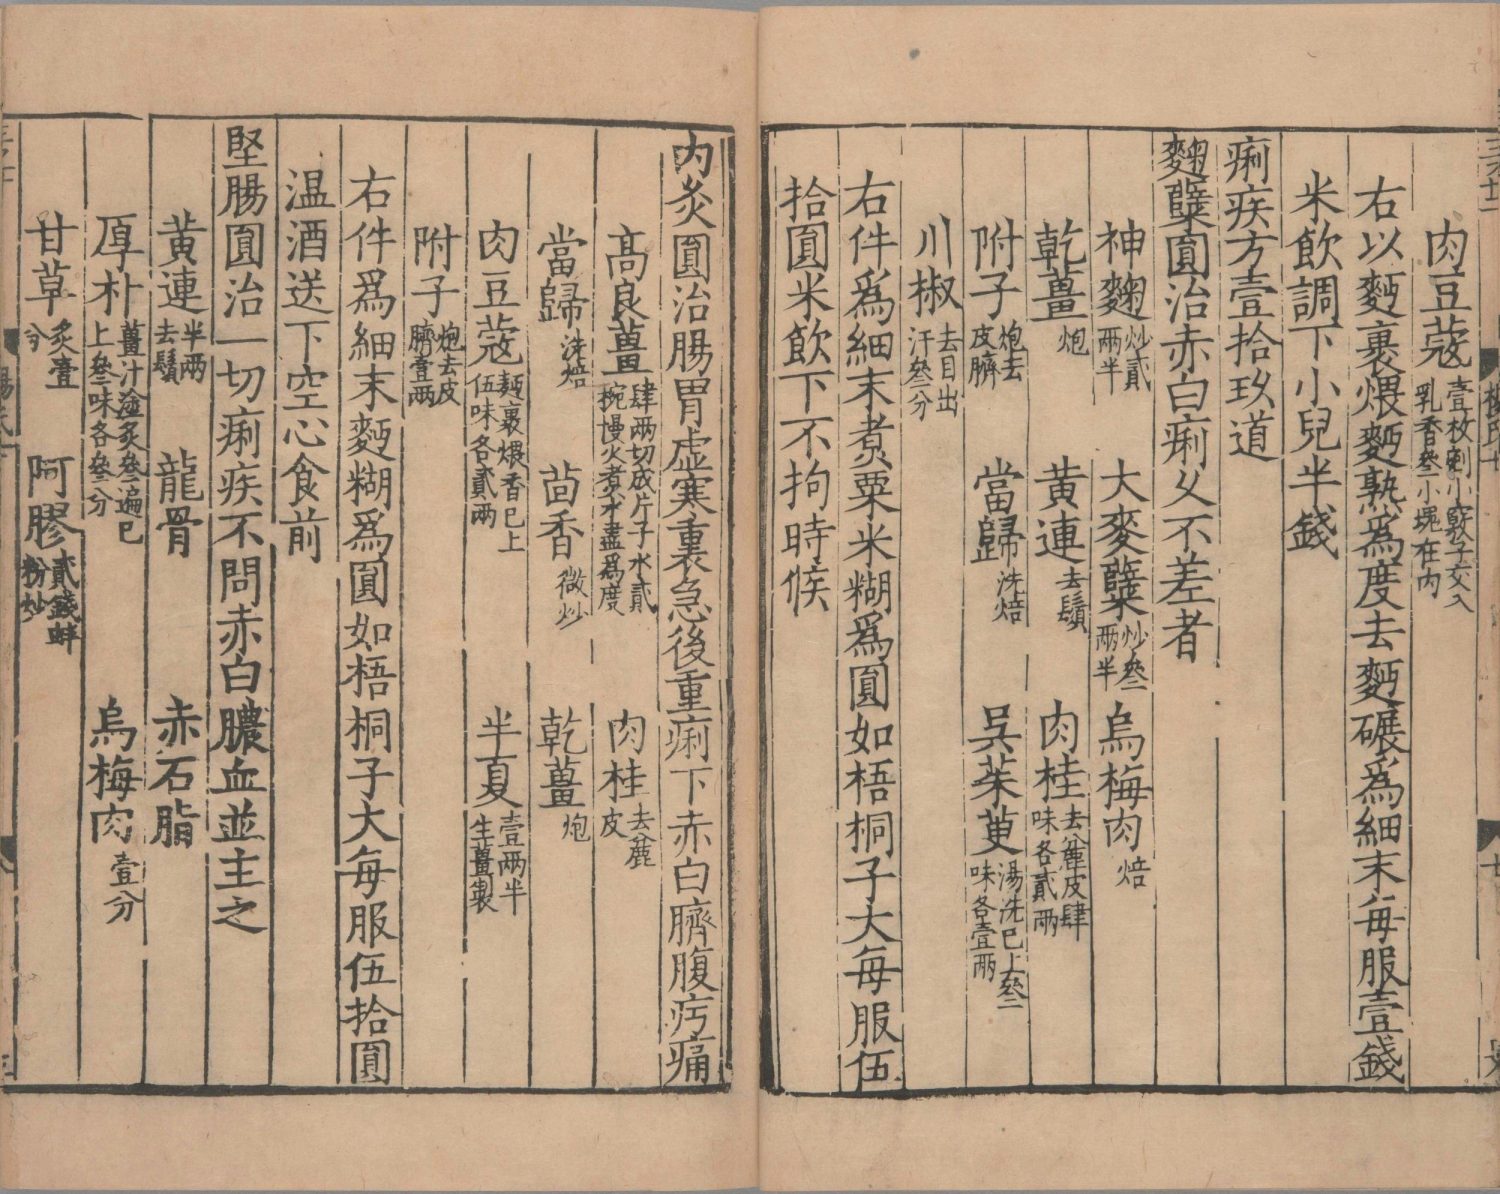 肉豆蔻壹枚剜小竅子女入乳香叄小塊在內
右以麪裹煨麪熟爲度去麪碾爲細末每服壹錢
米飲調下小兒半錢
痢疾方壹拾玖道
麴蘗圓治赤白痢久不差者
神麴炒貳兩半 大麥蘗炒叄兩半 烏梅肉焙
乾薑炮 黄連去鬚 肉桂去麄皮肆味各貳兩
附子炮去皮臍 當歸洗焙 呉茱萸湯洗已上叄味各壹兩
川椒去目出汗叄分
右件爲細末煮粟米糊爲圓如梧桐子大每服伍
拾圓米飲下不拘時候
内灸圓治腸胃虚寒裏急後重痢下赤白臍腹疞痛
高良薑肆兩切成片子水貳椀慢火煮水盡爲度 肉桂去麄皮
當歸洗焙 茴香微炒 乾薑炮
肉豆蔻麪裹煨香已上伍味各貳兩 半夏壹兩半生薑製
附子炮去皮臍壹兩
右件爲細末麪糊爲圓如梧桐子大每服伍拾圓
温酒送下空心食前
堅腸圓治一切痢疾不問赤白膿血並主之
黄連半兩去鬚 龍骨 赤石脂
厚朴薑汁塗炙叄遍已上叄味各叄分 烏梅肉壹分
甘草炙壹分 阿膠貳錢蚌粉炒